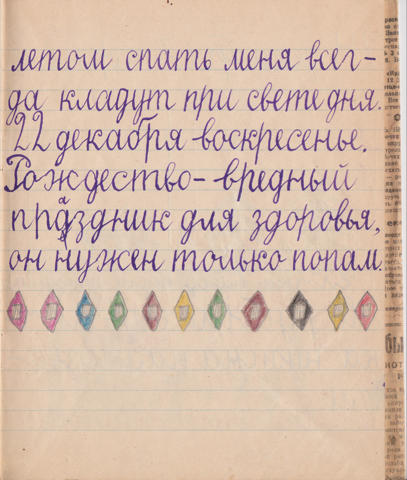 летом спать меня всег-
да кладут при свете дня.
22 декабря воскресенье.
Рождество-вредный
праздник для здоровья,
он нужен только попам.